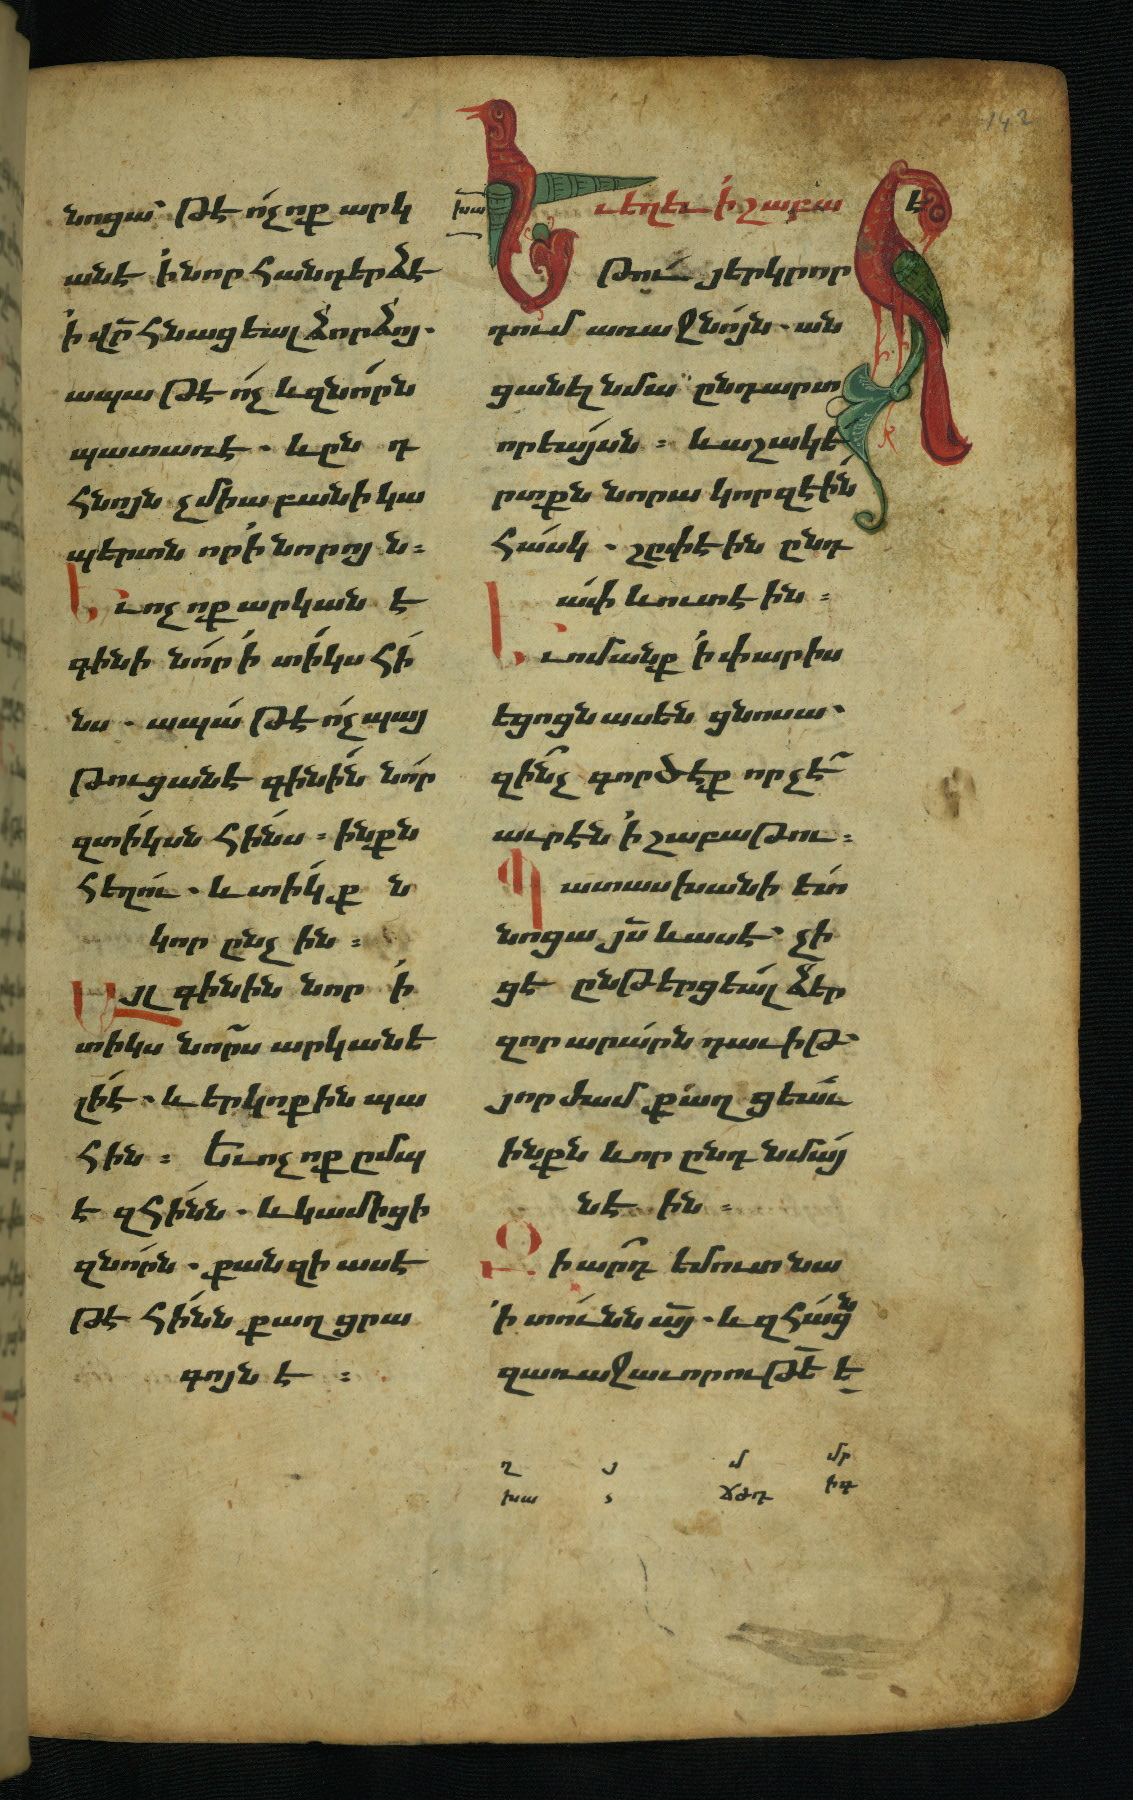 142
նոցա՝ թէ ո՛չ ոք արկ
անէ ՛ի նոր հանդերձէ
՛ի վր հնացեալ ձորձոյ.
ապա թէ ո՛չ և զնո՛րն
պատառէ. և ըն դ
հնոյն չմիաբանի կա
պերտն որ ՛ի նորոյն:
Եւ ոչ ոք արկան է
գինի նո՛ր ՛ի տի՛կս հի
նս. ապա՛ թէ ո՛չ պայ
թուցանէ գինին նո՛ր
զտի՛կսն հինս: ինքն
հեղու. և տիկք ն
կորընչին:
Այլ գինին նոր ՛ի
տիկս նորս արկանե
լի է. և երկոքին պա
հին: Եւ ոչ ոք ըմպ
է զհի՛նն. և կամիցի
զնո՛րն. քանզի ասէ
թէ հի՛նն քաղցրա
գոյն է:
խա
Եւ եղեւ ՛ի շաբա է
թու յերկրոր
դում առաջնո՛յն. ան
ցանել նմա ընդ արտ
որեայսն: և աշակե
րտքն նորա կորզէին
հասկ. շըփէին ընդ
ափ և ուտէին:
Եւ ոմանք ՛ի փարիս
եցոցն ասեն ցնոսա՝
զի՞նչ գործէք որ չէ՞
աւրէն ՛ի շաբաթու:
Պատասխանի ետ
նոցա յս և ասէ՝ չի
ցե ընթերցեալ ձեր
զոր արարն դաւիթ՝
յորժամ քաղցեաւ
ինքն և որ ընդ նմայ
նէին:
Զիա՞րդ եմուտ նա
՛ի տունն այ. և զհացն
զառաջաւորութե ե
ղ յ մ մր
խա ճժդ իգ